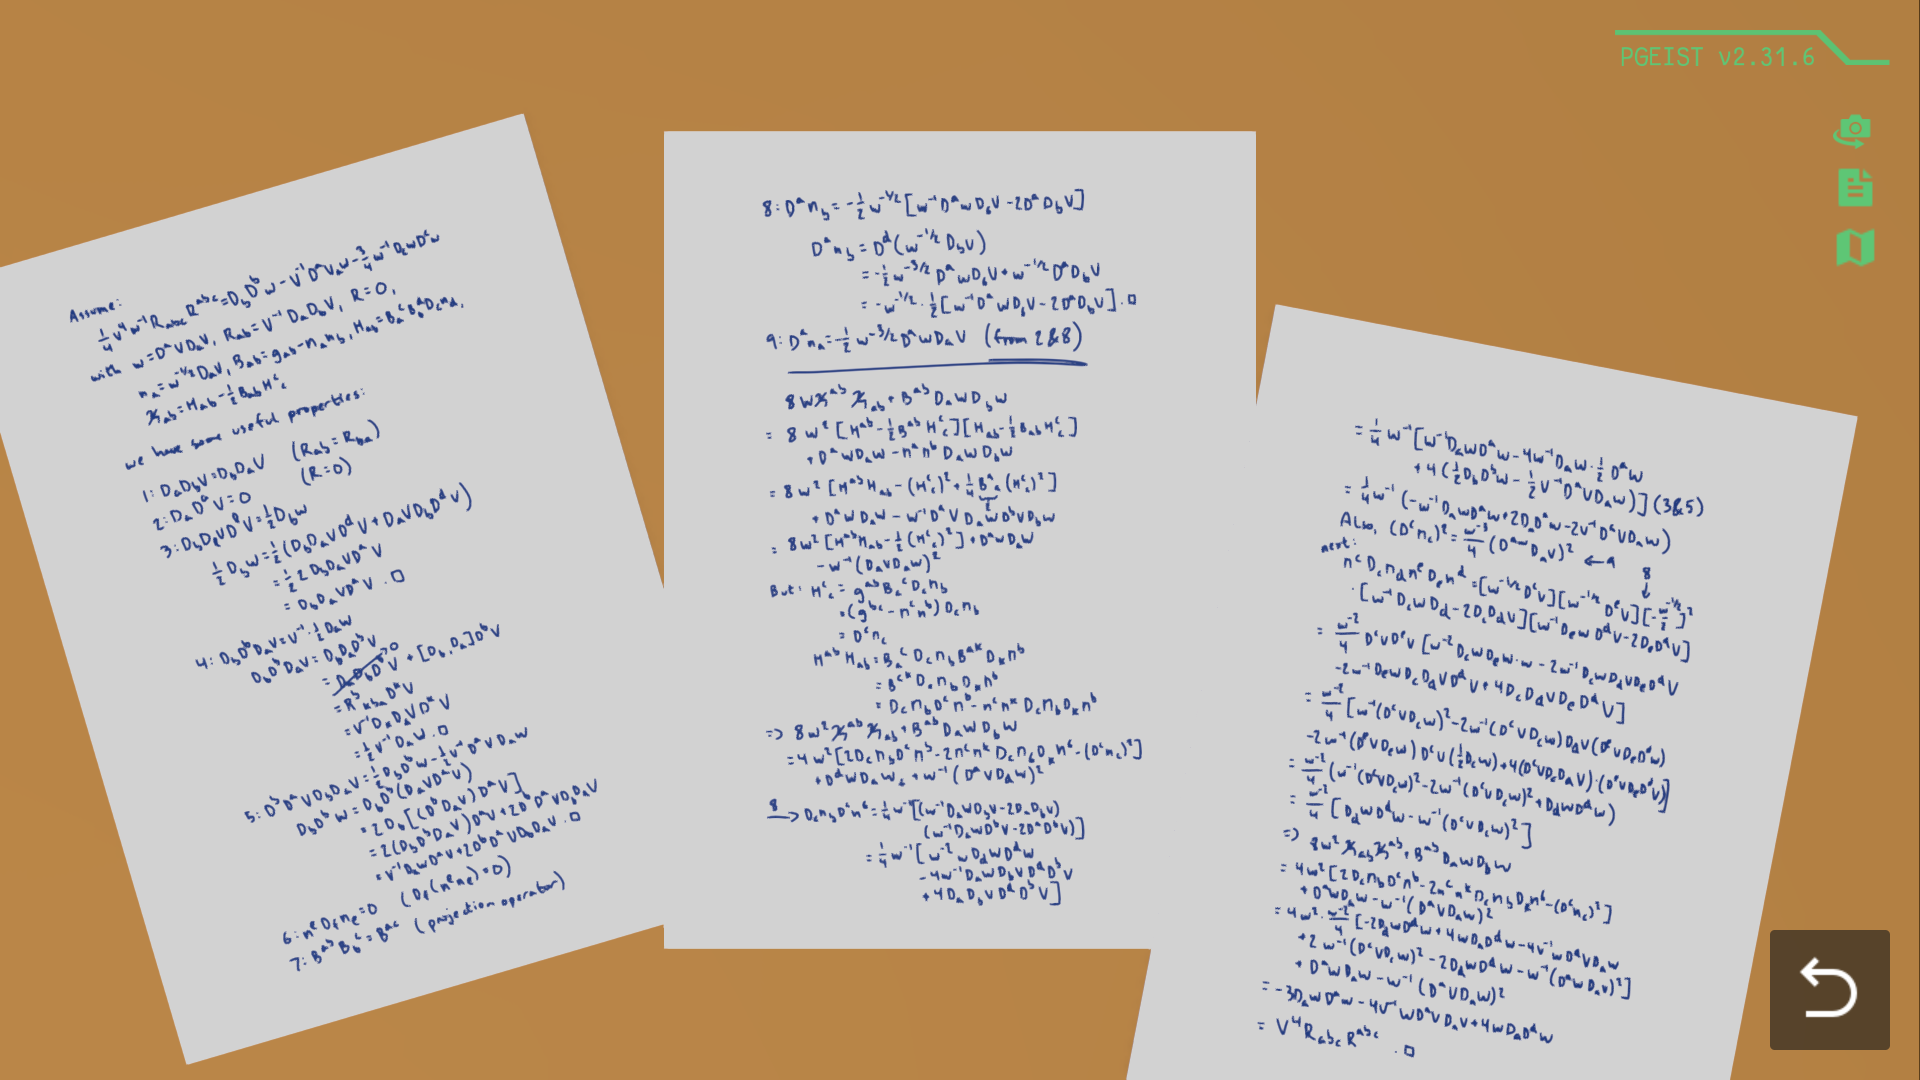 PGEIST v2.31.6
Assume:
¼V⁴w⁻¹R_abc R^abc = D_b D^b w - V⁻¹D^aVD_a w - ¾w⁻¹D_c wD^c w
with w = D^aVD_aV, R_ab = V⁻¹D_aD_bV, R=0,
n_a = w^-1/2 D_aV, B_ab = g_ab - n_a n_b, H_ab = B_a^c B_b^d D_c n_d,
ℋ_ab = H_ab - ½B_ab H^c_c
we have some useful properties:
1: D_aD_bV = D_bD_aV (R_ab = R_ba)
2: D_aD^aV = 0 (R=0)
3: D_bD_eVD^eV = ½D_b w
½D_b w = ½(D_bD_aVD^aV + D_aVD_bD^aV)
= ½ 2 D_bD_aVD^aV
= D_bD_aVD^aV . □
4: D_bD^bD_aV = V⁻¹·½D_a w
D_bD^bD_aV = D_bD_aD^bV
= D_aD_bD^bV→0 + [D_b, D_a]D^bV
= R^b_kba D^kV
= V⁻¹D_kD_aVD^kV
= ½V⁻¹D_a w . □
5: D^bD^aVD_bD_aV = ½D_bD^b w - ½V⁻¹D^aVD_a w
D_bD^b w = D_bD^b(D_aVD^aV)
= 2D_b[(D^bD_aV)D^aV]
= 2(D_bD^bD_aV)D^aV + 2D^bD^aVD_bD_aV
= V⁻¹D_a wD^aV + 2D^bD^aVD_bD_aV . □
6: n^e D_f n_e = 0 (D_f(n^e n_e) = 0)
7: B^ab B_b^c = B^ac (projection operator)
8: D^a n_b = -½w^-1/2[w⁻¹D^a wD_bV - 2D^aD_bV]
D^a n_b = D^d(w^-1/2 D_bV)
= -½w^-3/2 D^a wD_bV + w^-1/2 D^aD_bV
= -w^-1/2 · ½[w⁻¹D^a wD_bV - 2D^aD_bV] . □
9: D^a n_a = -½w^-3/2 D^a wD_aV (from 2&8)
8wℋ^abℋ_ab + B^ab D_a wD_b w
= 8w²[H^ab - ½B^ab H^c_c][H_ab - ½B_ab H^c_c]
+ D^a wD_a w - n^a n^b D_a wD_b w
= 8w²[H^ab H_ab - (H^c_c)² + ¼B^a_a(H^c_c)²]
2
+ D^a wD_a w - w⁻¹D^aVD_a wD^bVD_b w
= 8w²[H^ab H_ab - ½(H^c_c)²] + D^a wD_a w
- w⁻¹(D_aVD_a w)²
But: H^c_c = g^ab B_a^c D_c n_b
= (g^bc - n^c n^b)D_c n_b
= D^c n_c
H^ab H_ab = B_a^c D_c n_b B^ak D_k n^b
= B^ck D_c n_b D_k n^b
= D_c n_b D^c n^b - n^c n^k D_c n_b D_k n^b
=> 8w²ℋ^abℋ_ab + B^ab D_a wD_b w
= 4w²[2D_c n_b D^c n^b - 2n^c n^k D_c n_b D_k n^b - (D^c n_c)²]
+ D^d wD_d w_c + w⁻¹(D^aVD_a w)²
8 → D_c n_b D^c n^b = ¼w⁻¹[(w⁻¹D_a wD_bV - 2D_aD_bV)
(w⁻¹D_a wD^bV - 2D^aD^bV)]
= ¼w⁻¹[w⁻² wD_d wD^d w
- 4w⁻¹D_a wD_bVD^aD^bV
+ 4D_aD_bVD^aD^bV]
= ¼w⁻¹[w⁻¹D_a wD^a w - 4w⁻¹D_a w·½D^a w
+ 4(½D_bD^b w - ½V⁻¹D^aVD_a w)] (3&5)
= ¼w⁻¹(-w⁻¹D_a wD^a w + 2D_aD^a w - 2V⁻¹D^aVD_a w)
Also, (D^c n_c)² = w⁻³/4 (D^a wD_aV)² ← 9
next:
8
↓
n^c D_c n_d n^e D_e n^d = [w^-1/2 D^cV][w^-1/2 D^eV][-w^-1/2/2]²
·[w⁻¹D_c wD_d - 2D_cD_dV][w⁻¹D_e wD^dV - 2D_eD^dV]
= w⁻²/4 D^cVD^eV[w⁻²D_c wD_e w·w - 2w⁻¹D_c wD_dVD_eD^dV
- 2w⁻¹D_e wD_cD_dVD^dV + 4D_cD_dVD_eD^dV]
= w⁻²/4 [w⁻¹(D^cVD_c w)² - 2w⁻¹(D^cVD_c w)D_dV(D^eVD_eD^d w)
- 2w⁻¹(D^eVD_e w)D^cV(½D_c w) + 4(D^cVD_cD_dV)·(D^eVD_eD^dV)]
= w⁻²/4 (w⁻¹(D^cVD_c w)² - 2w⁻¹(D^cVD_c w)² + D_d wD^d w)
= w⁻²/4 [D_d wD^d w - w⁻¹(D^cVD_c w)²]
=> 8w²ℋ_abℋ^ab + B^ab D_a wD_b w
= 4w²[2D_c n_b D^c n^b - 2n^c n^k D_c n_b D_k n^b - (D^c n_c)²]
+ D^a wD_a w - w⁻¹(D^aVD_a w)²
= 4w²·w⁻²/4 [-2D_d wD^d w + 4wD_aD^d w - 4V⁻¹wD^aVD_a w
+ 2w⁻¹(D^cVD_c w)² - 2D_d wD^d w - w⁻¹(D^a wD_aV)²]
+ D^a wD_a w - w⁻¹(D^aVD_a w)²
= -3D_a wD^a w - 4V⁻¹wD^aVD_aV + 4wD_aD^d w
= V⁴R_abc R^abc . □